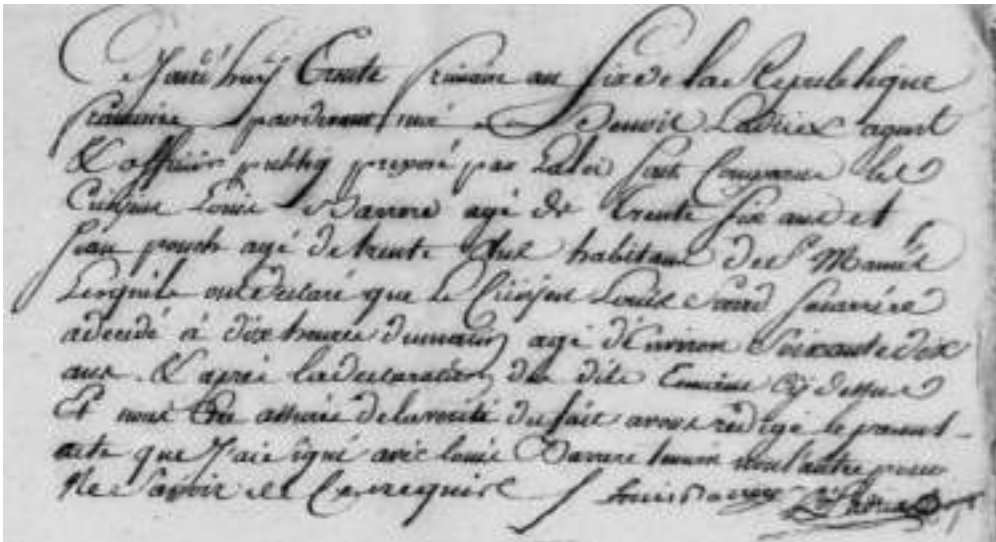 Jourd'huy trente frimaire an six de la Republique
francaise pardevant moi Benoit Ladrix agent
& officier public preposé par la loi sont comparus les
Citoyens Louis Barrere agé de trente six ans et
Jean pouch agé de trente ans habitans de St Mamet
Lesquels ont declaré que le Citoyen Louis
a decedé à dix heures du matin agé d'Environ Soixante dix
ans. & apres la declaration des dits temoins cy dessus
Et nous etre assuré de la verité du fait avons redigé le present
acte que J'ai signé avec louis Barrere temoin non l'autre pour
Ne Savoir de Ce requis Louis Barrere Ladrix